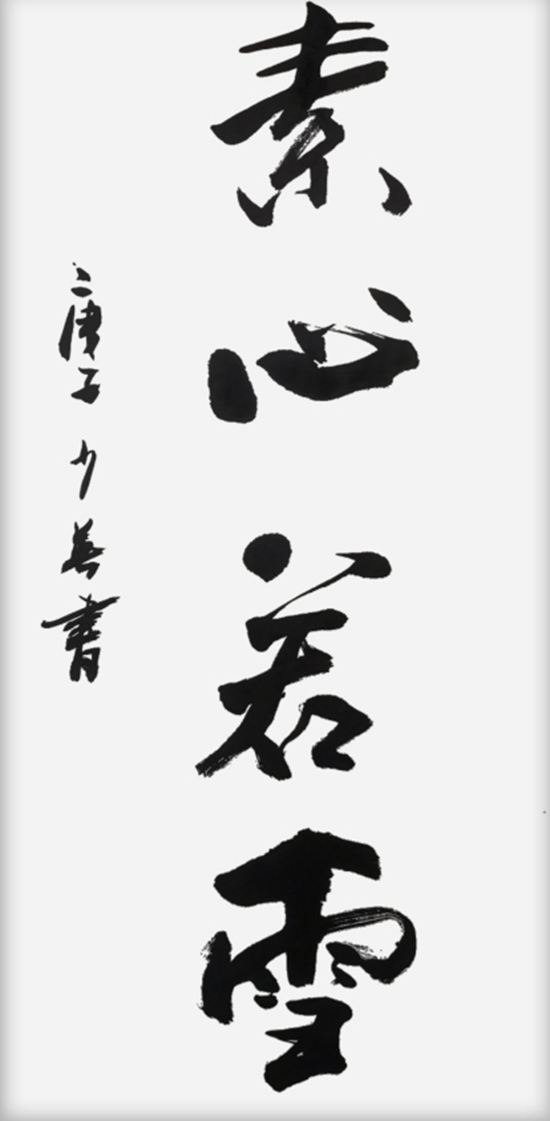 素心若雪
庚子少善書